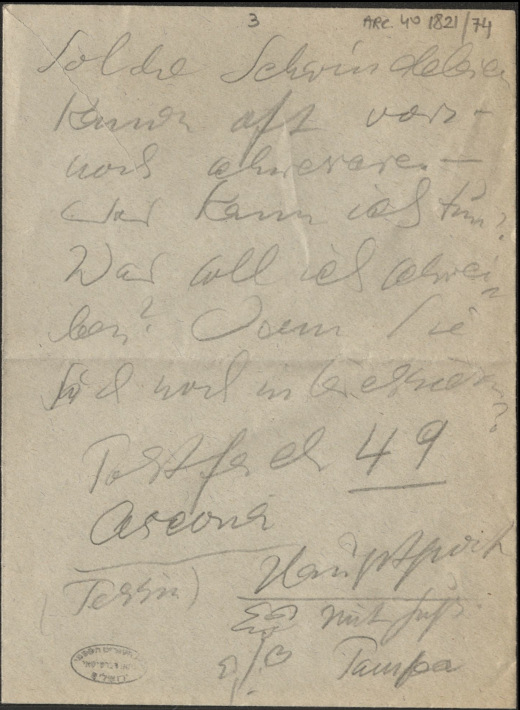 3
ARC. 40 1821/74
Solche Schwindeleien
kamen oft vor –
noch schwerere. –
Was kann ich tun?
Was soll ich schrei=
ben? Wenn Sie
sich noch interessieren?
Postfach 49
Ascona
(Tessin)
Hauptpost
mit